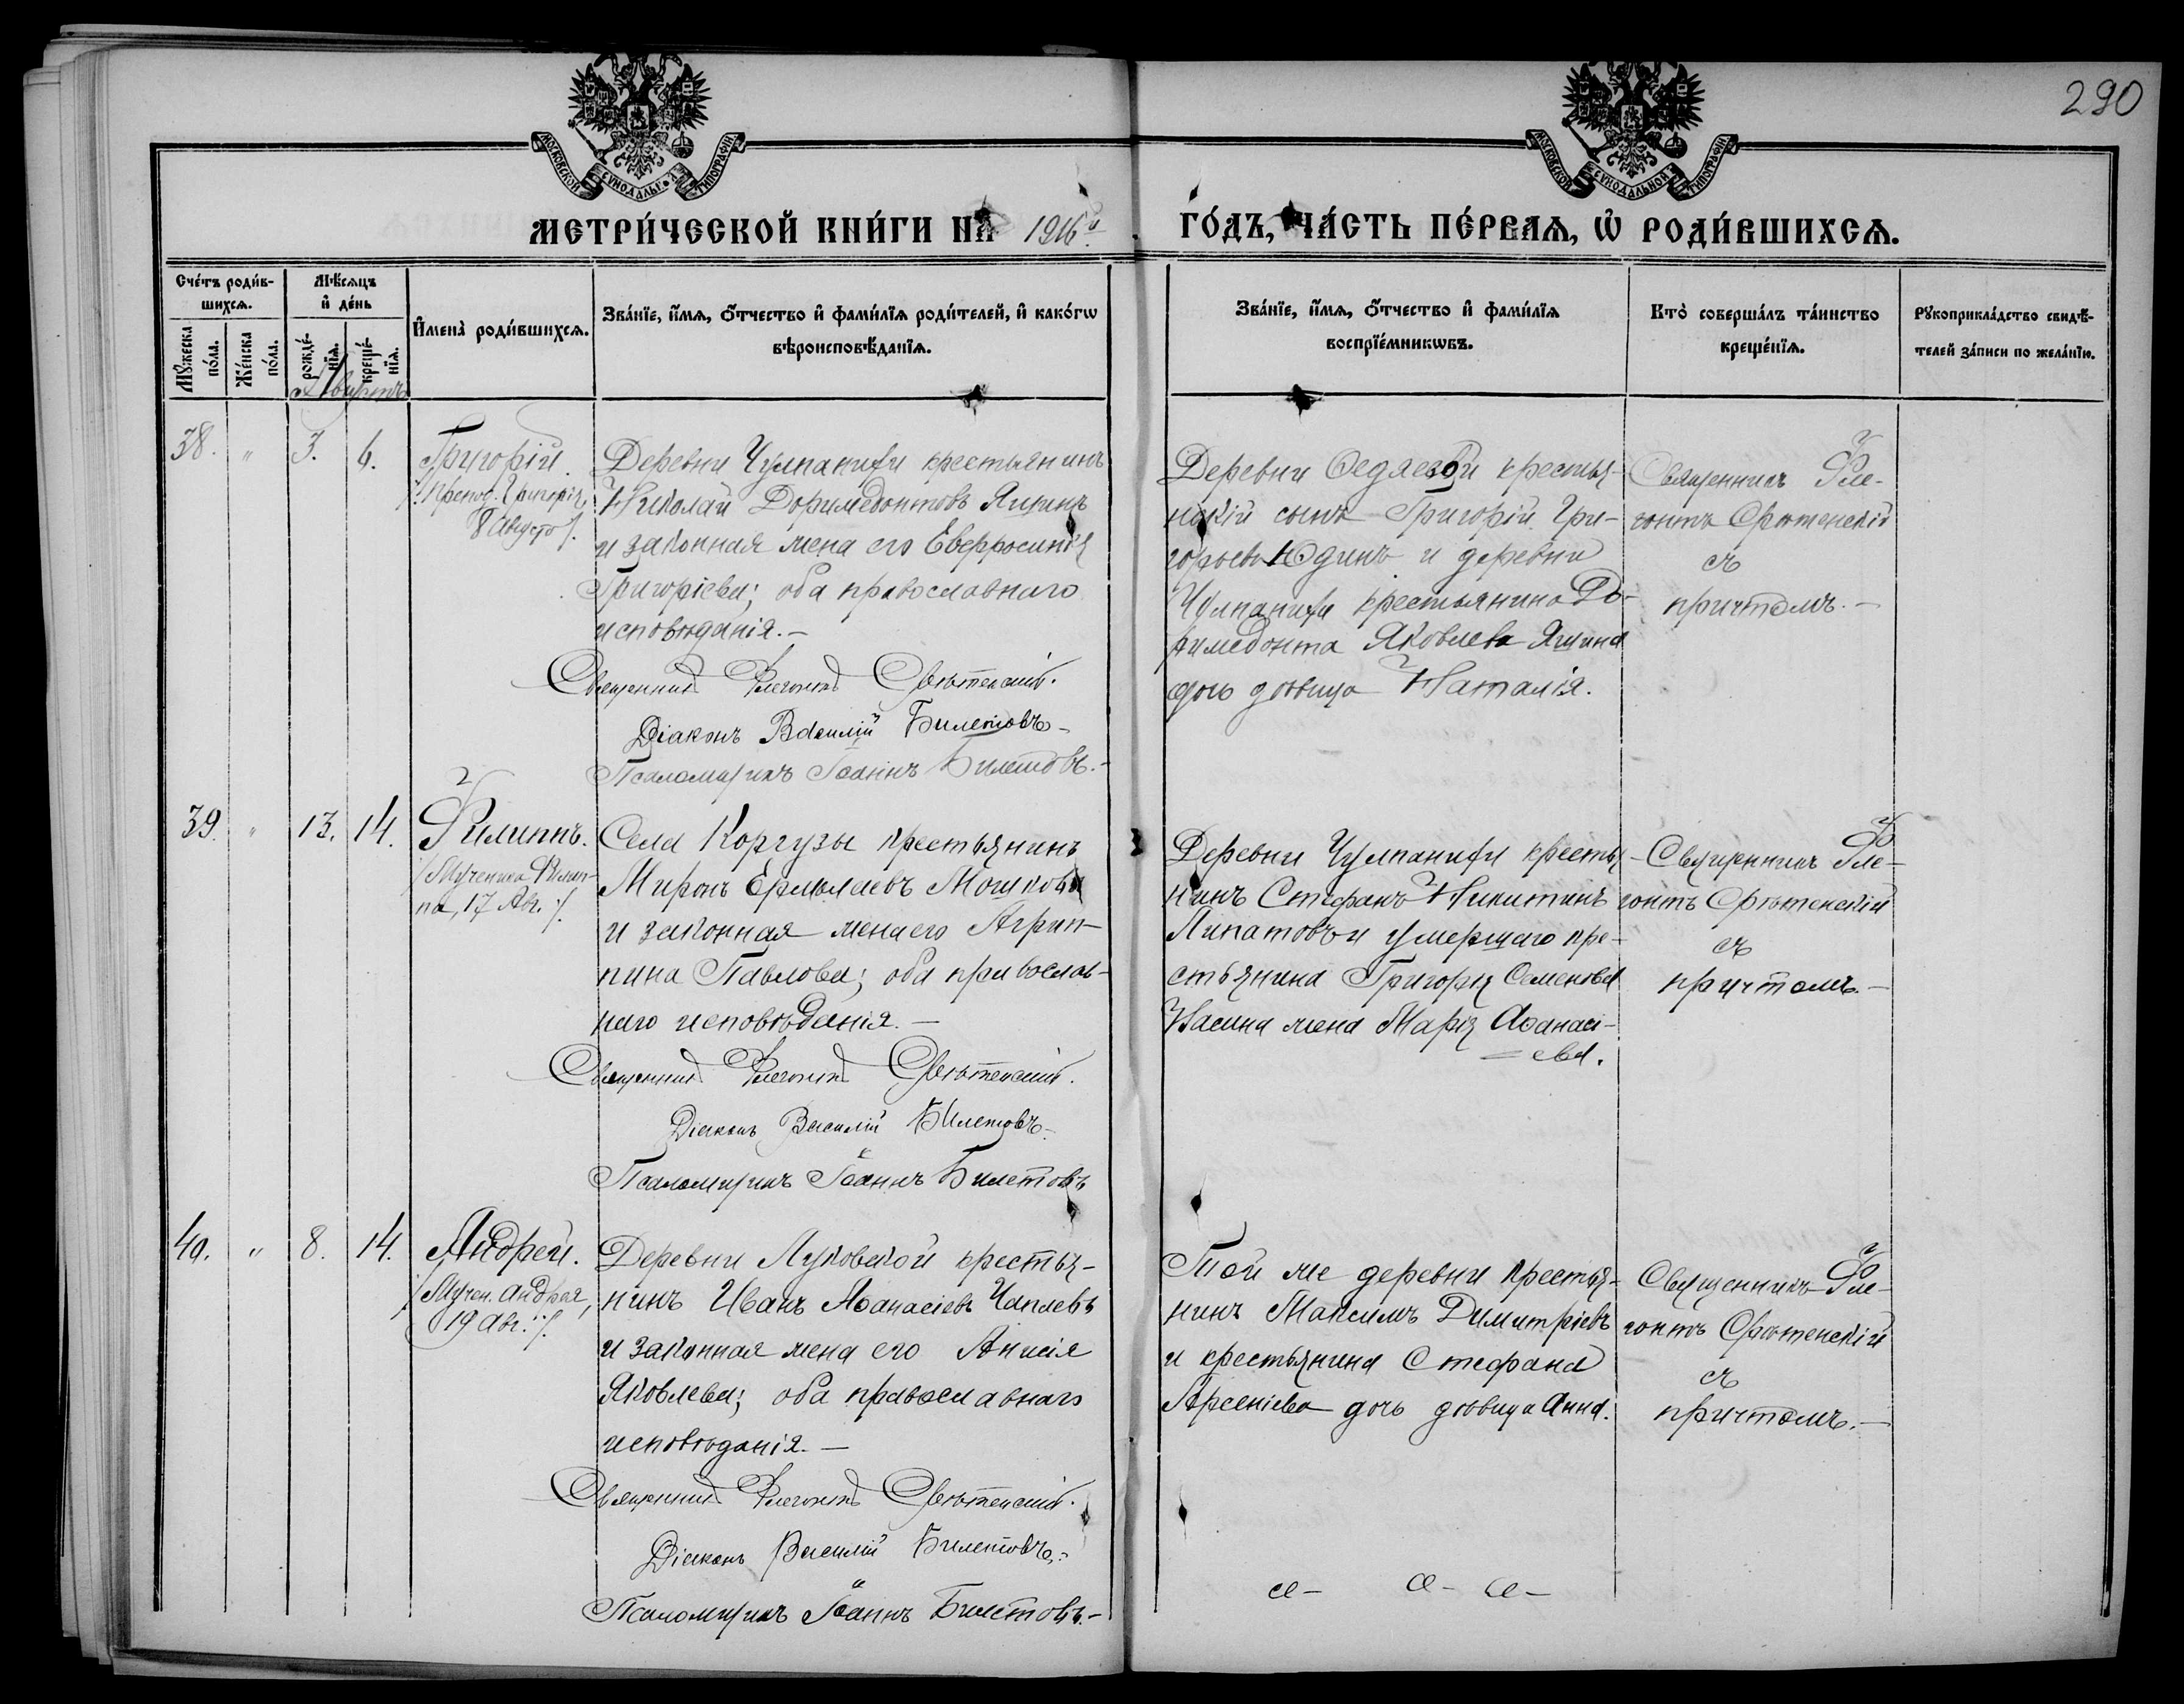 290
МОСКОВСКОЙ СѴНОДАЛЬНОЙ ТИПОГРАФІИ
МОСКОВСКОЙ СѴНОДАЛЬНОЙ ТИПОГРАФІИ
МЕТРИ́ЧЕСКОЙ КНИ́ГИ НА 1916й ГО́ДЪ, ЧА́СТЬ ПЕ́РВАѦ, Ѡ҆ РОДИ́ВШИХСѦ.
Сче́тъ роди́в-
шихсѧ.
Мꙋ́жеска
по́ла.
Же́нска
по́ла.
Мѣ́сѧцъ
и҆ де́нь
рожде́-
нїѧ.
креще́-
нїѧ.
Августъ
И҆мена̀ роди́вшихсѧ.
Зва́нїе, и҆́мѧ, ѻ҆́тчество и҆ фами́лїѧ роди́телей, и҆ како́гѡ
вѣроисповѣ́данїѧ.
Зва́нїе, и҆́мѧ, ѻ҆́тчество и҆ фами́лїѧ
воспрїе́мникѡвъ.
Кто̀ соверша́лъ та́инство
креще́нїѧ.
Рꙋкоприкла́дство свидѣ́-
телей за́писи по жела́нїю.
38. " 3. 6.
Григорій.
/Препод. Григорія,
8 Августа/.
Деревни Чулпанихи крестьянинъ
Николай Доримедонтовъ Яшинъ
и законная жена его Евфросинія
Григоріева; оба православнаго
исповѣданія.-
Священникъ Флегонтъ Срѣтенскій.
Діаконъ Василій Билетовъ-
Псаломщикъ Іоаннъ Билетовъ.-
Деревни Федяевой крестья-
нскій сынъ Григорій Гри-
горьевъ Юдинъ и деревни
Чулпанихи крестьянина До-
римедонта Яковлева Яшина
дочь дѣвица Наталія.
Священникъ Фле-
гонтъ Срѣтенскій
съ
причтомъ.-
39. " 13. 14.
Филиппъ.
/Мученика Филип-
па, 17 Авг./.
Села Коргузы крестьянинъ
Миронъ Ермолаевъ Мошковъ
и законная жена его Агрип-
пина Павлова; оба православ-
наго исповѣданія.-
Священникъ Флегонтъ Срѣтенскій.
Діаконъ Василій Билетовъ-
Псаломщикъ Іоаннъ Билетовъ
Деревни Чулпанихи крестья-
нинъ Стефанъ Никитинъ
Липатовъ и умершаго кре-
стьянина Григорія Семенова
жена Марія Аѳанасі-
=ева.
Священникъ Фле-
гонтъ Срѣтенскій
съ
причтомъ.-
40. " 8. 14.
Андрей.
/Мучен. Андрея,
19 Авг./.
Деревни Луковской крестья-
нинъ Иванъ Аѳанасіевъ Чаплевъ
и законная жена его Анисія
Яковлева; оба православнаго
исповѣданія.-
Священникъ Флегонтъ Срѣтенскій.
Діаконъ Василій Билетовъ.-
Псаломщикъ Іоаннъ Билетовъ.-
Той же деревни крестья-
нинъ Максимъ Димитріевъ
и крестьянина Стефана
Арсеніева дочь дѣвица Анна.
Священникъ Фле-
гонтъ Срѣтенскій
съ
причтомъ.-